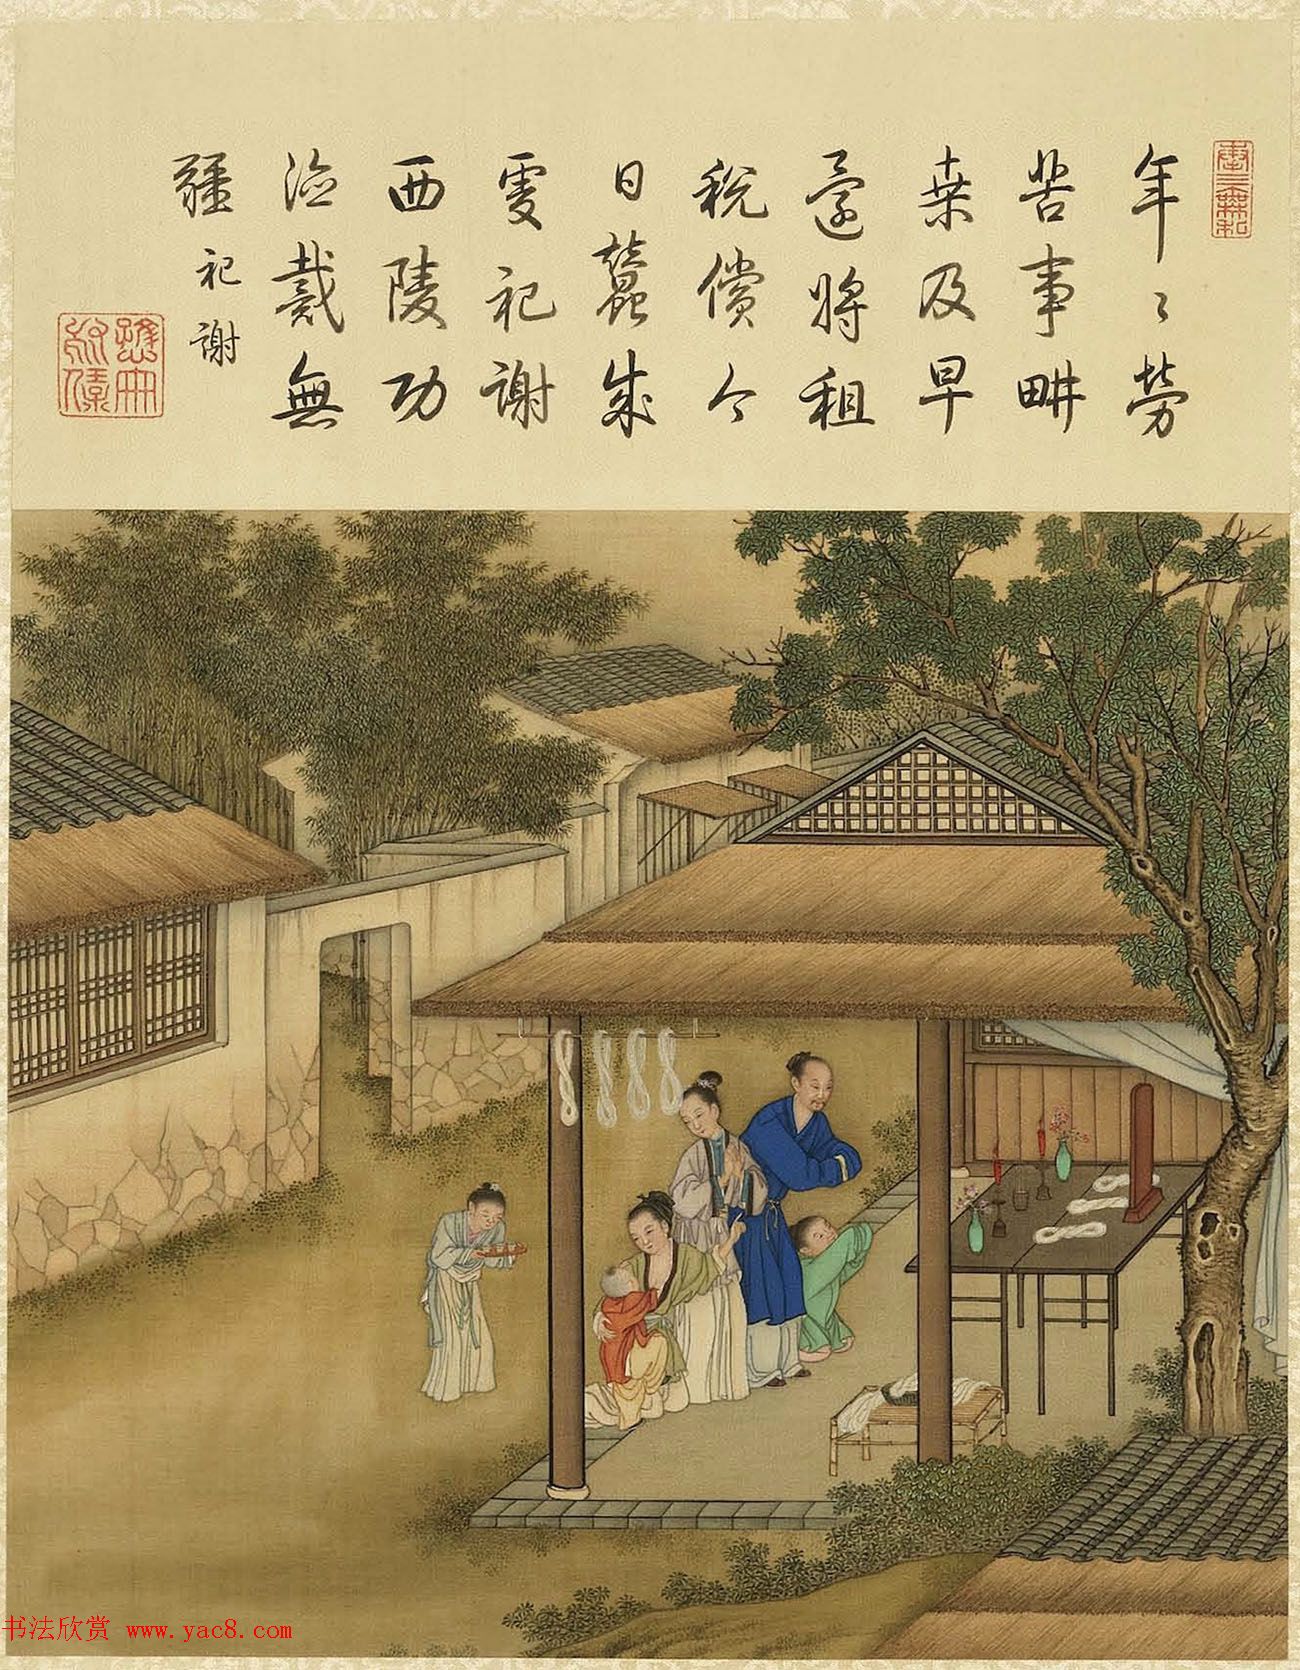 年〻勞
苦事畊
桒及早
還將租
稅償今
日蠶成
虔祀謝
西陵功
德戴無
疆 祀謝
书法欣赏 www.yac8.com